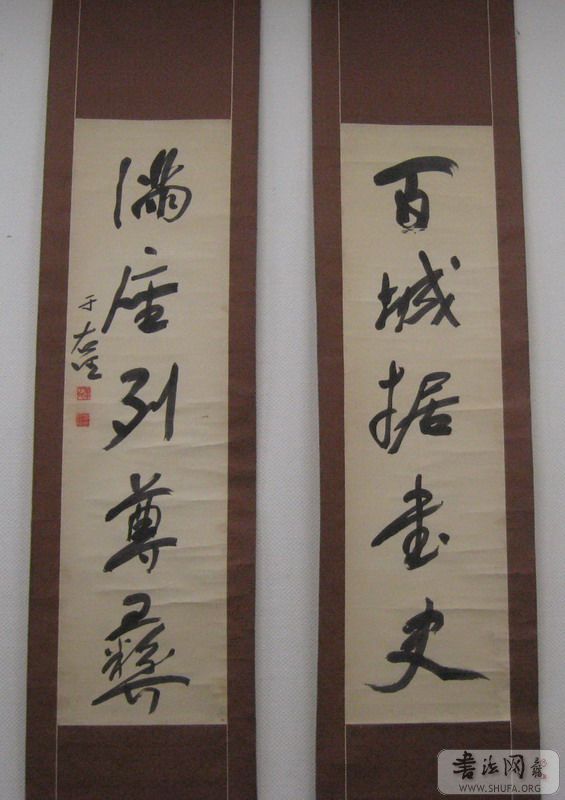 百城据書史
满座列尊彝
于右任
書法网
WWW.SHUFA.ORG